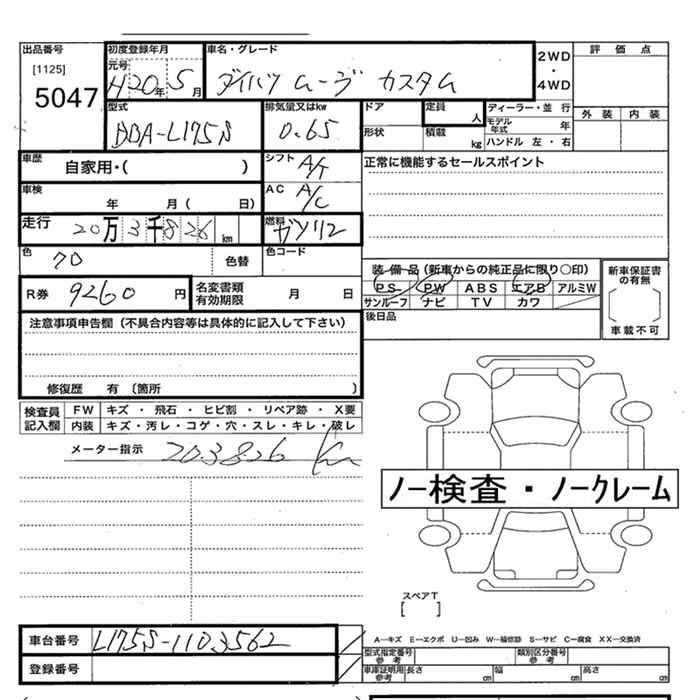 出品番号
[1125]
5047
初度登録年月
元号
H20年 5月
車名・グレード
ダイハツ ムーヴ カスタム
2WD
・
4WD
評 価 点
外 装 内 装
型式
DBA-L175S
排気量又はkw
0.65
ドア
形状
定員
人
積載
kg
ディーラー・並 行
モデル年式 年
ハンドル 左・右
車歴
自家用・( )
シフト
A/T
正常に機能するセールスポイント
車検
年 月( 日)
AC
A/C
走行
20万3千826km
燃料
ガソリン
色
色替
色コード
装 備 品(新車からの純正品に限り〇印)
PS PW ABS エアB アルミW
サンルーフ ナビ TV カワ
新車保証書の有無
車載不可
R券 9260 円
名変書類有効期限
月 日
後日品
注意事項申告欄(不具合内容等は具体的に記入して下さい)
修復歴 有〔箇所 )
検査員記入欄
FW キズ・飛石・ヒビ割・リペア跡・X要
内装 キズ・汚レ・コゲ・穴・スレ・キレ・破レ
メーター指示 203826 Km
ノー検査・ノークレーム
スペアT
[ ]
車台番号 L175S-1103562
登録番号
A−キズ E−エクボ U−凹み W−補修跡 S−サビ C−腐食 XX−交換済
型式指定番号 参考
類別区分番号 参考
車庫証明用 参考
長さ cm 幅 cm 高さ cm